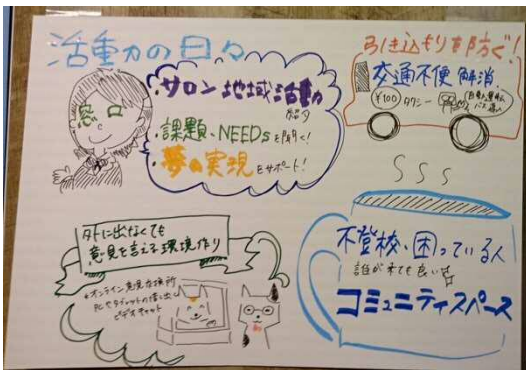 活動力の日々
窓口
・サロン地域活動
紹介
・課題、NEEDsを聞く!
・夢の実現をサポート!
引き込もりを防ぐ!
交通不便解消
¥100 タクシー
外に出なくても
意見を言える環境作り
オンライン意見交換所
PCやタブレットの貸し出し
ビデオチャット
不登校、困っている人
誰が来ても良い
コミュニティスペース